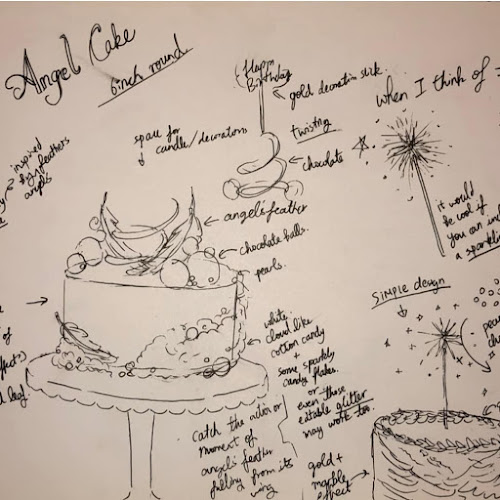 Amgel Cake
6inch round
Happy
Birthday
gold decoration stick.
when I think of
space for
candle/decorations
twisting
chocolate
inspired
by feathers
angels
angel's feather
chocolate balls.
pearls.
it would
be cool if
you can
a sparkli
Simple design
white
cloud like
cotton candy
+
some sparkly
candy flakes.
or
even those
editable glitter
may work too.
catch the
moment of
angel's feather
falling from its
wing
gold +
marble
effect
of
leaf